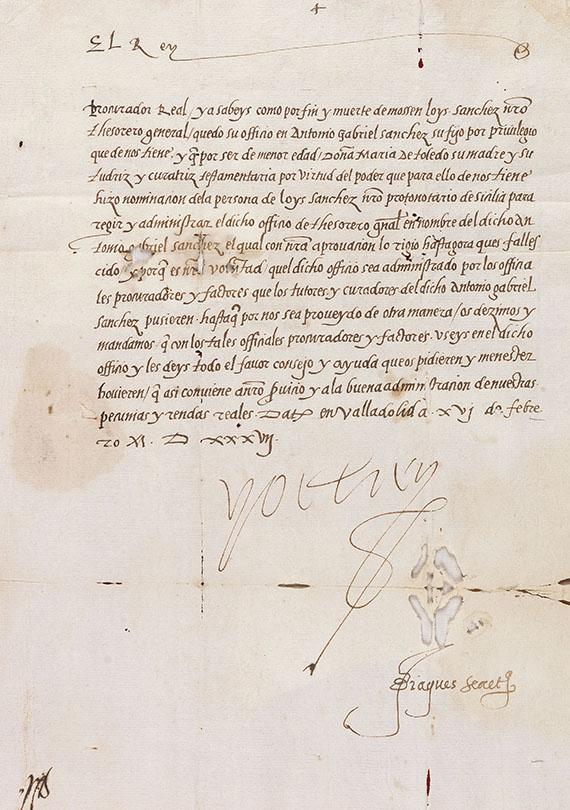 El Rey
procurador Real / ya sabeys como por fin y muerte de mossen loys sanchez nr̃o
thesorero general / quedo su officio en Antonio gabriel sanchez su fijo por privilegio
que de nos tiene / y q̃ por ser de menor edad / Doña Maria de toledo su madre y su
tudriz y curatriz testamentaria por virtud del poder que para ello de nos tiene
hizo nominacion dela persona de loys sanchez nr̃o prothonotario de sicilia para
regir y administrar el dicho officio de thesorero gñal en nombre del dicho An
tonio gabriel sanchez el qual con nr̃a aprovacion lo rigio hastagora ques falles
cido / y porq̃ es nr̃a voluntad quel dicho officio sea administrado por los officia
les procuradores y factores que los tutores y curadores del dicho Antonio gabriel
sanchez pusieren hastaq̃ por nos sea proveydo de otra manera / os dezimos y
mandamos q̃ con los tales officiales procuradores y factores useys en el dicho
officio y les deys todo el favor consejo y ayuda que os pidieren y menester
hovieren / q̃ asi conviene a nr̃o servicio y ala buena administracion de nuestras
pecunias y rendas reales. Datt̃ en Valladolid a xvj de febre
ro M D xxxvij
yo el rey